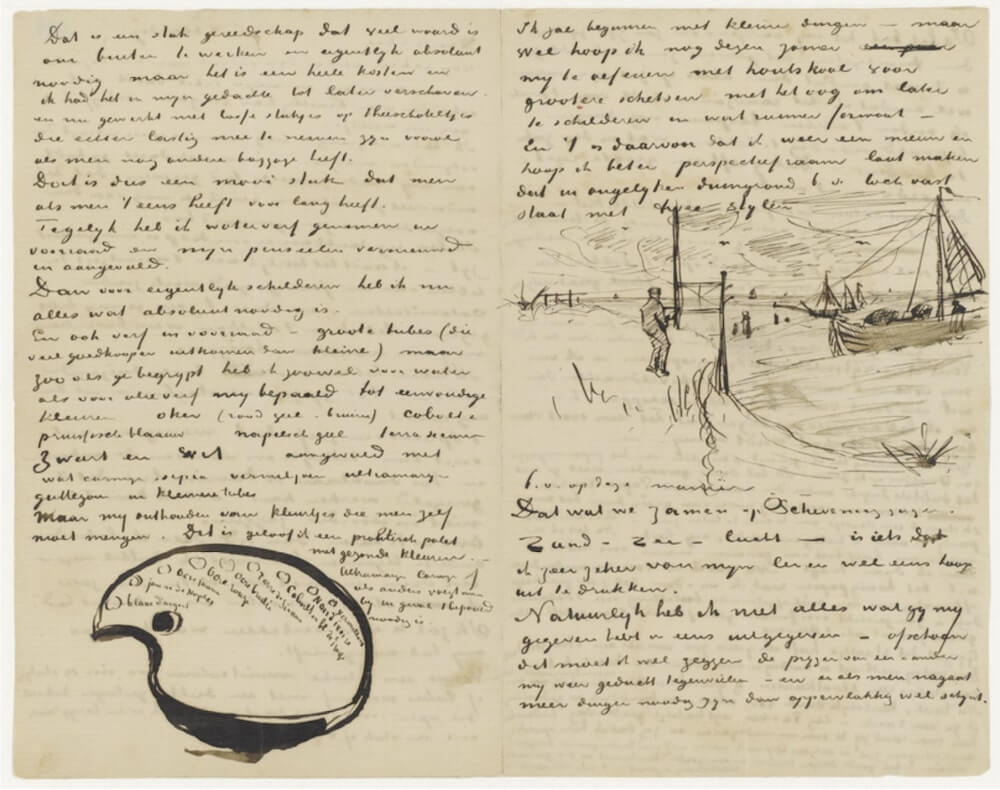 Dat is een stuk gereedschap dat veel waard is
om buiten te werken en eigentlyk absoluut
noodig maar het is een heele kosten en
ik had het in myn gedachte tot later verschoven.
en nu gewerkt met losse stukjes op theeschoteltjes
die echter lastig mee te nemen zyn vooral
als men nog andere baggage heeft.
Dat is dus een mooi stuk dat men
als men 't eens heeft voor lang heeft.
Tegelyk heb ik waterverf genomen in
voorraad en myn penseelen vernieuwd
en aangevuld.
Dan voor eigentlyk schilderen heb ik nu
alles wat absoluut noodig is.
En ook verf in voorraad – groote tubes (die
veel goedkooper uitkomen dan kleine) maar
zoo als ge begrypt heb ik zoowel voor water
als voor olieverf my bepaald tot eenvoudige
kleuren oker (rood geel. bruin) cobalt &
pruissisch blaauw napelsch geel terra sienna
zwart en wit aangevuld met
wat carmyn sepia vermiljoen ultramaryn
guttegom in kleinere tubes
Maar my onthouden van kleurtjes die men zelf
moet mengen. Dit is geloof ik een praktisch palet
met gezonde kleuren. –
Ultramaryn Carmyn of
als anders
by in geval 't bepaald
noodig is
blanc d'argent
jaune de Naples
ocre jaune
ocre rouge
ocre brune
Terra de Sienne
Cobalt
Noir d'ivoire
vermillon
Ik zal beginnen met kleine dingen – maar
wel hoop ik nog dezen zomer
my te oefenen met houtskool voor
grootere schetsen met het oog om later
te schilderen in wat ruimer formaat –
En 't is daarvoor dat ik weer een nieuw en
hoop ik beter perspectiefraam laat maken
dat in ongelyken duingrond b.v. toch vast
staat met twee stylen
b.v. op deze manier
Dat wat we zamen op Schevening zagen.
Zand – Zee – lucht – is iets dat
ik zeer zeker van myn leven wel eens hoop
uit te drukken.
Natuurlyk heb ik niet alles wat gy my
gegeven hebt in eens uitgegeven – ofschoon
dit moet ik wel zeggen de pryzen van een & ander
my weer geducht tegenvielen – en er als men nagaat
meer dingen noodig zyn dan oppervlakkig wel schynt.